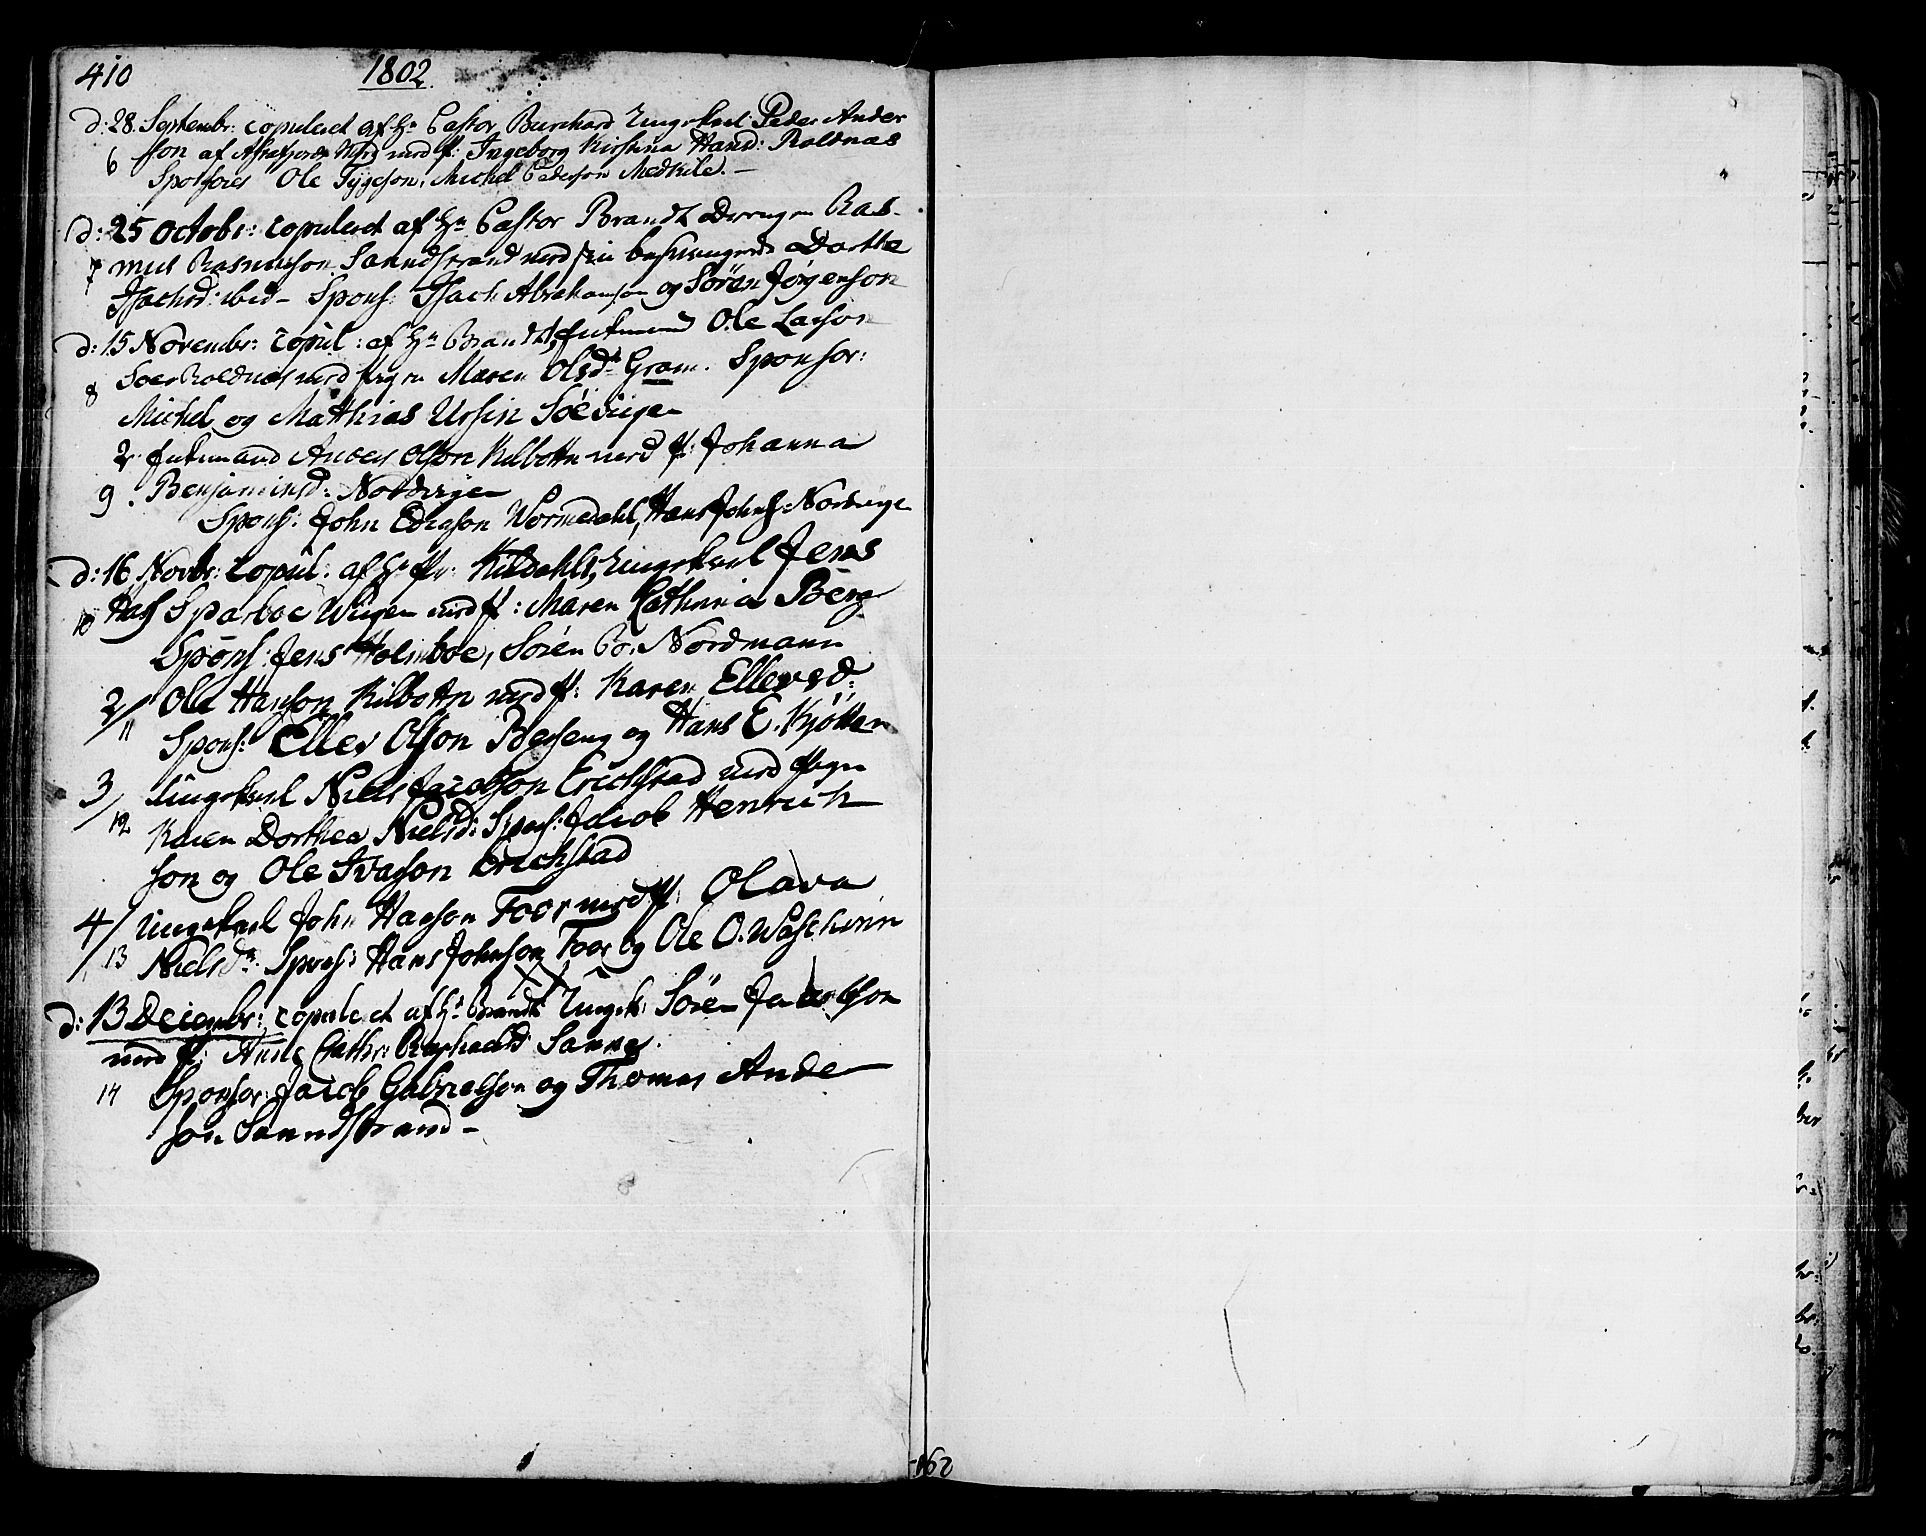 410 1802
d: 28. Septembr: copuleret af Hr Pastor Burchard Ungekarl Peder Ander
6 sson af Astafjords med f: Ingeborg Kirstina Hansd: Roldnæs
Sponsores Ole Tygeson, Michel Pederson Medkile. –
d: 25 Octobr: copuleret af Hr Pastor Brandt Drengen Ras-
7 mus Rasmusson Sanndstrand med sin besvangrede Dorthe
Isachsd: ibid – Spons: Isach Abrahamson og Sören Jörgenson
d: 15 Novembr: copul: af Hr Brandt, Enkemand Ole Larson
8 Roldnæs med pigen Maren Olsdr Gram. Sponsor:
Michel og Matthias Ursin Söevigen
2. Enkemand Anders Olsson Kilbottn med f: Johanna
9. Benjaminsd: Nordvigen
Spons: John Ederson Wormedahl, Hans Johns: Nordvige
d: 16 Novbr: copul: af Hr Kildahl, Ungekarl Jens
10 Hass Sparboe Wiigen med f: Maren Cathrina Berg
Spons: Jens Holmboe, Sören Nordmann
2/ Ole Hanson Kilbottn med f: Karen Ellersd:
11 Spons: Eller Olsson Berseng og Hans E. Kjötten
3/ Ungekarl Niels Jacobson Erichstad med pigen
12 Karen Dorthea Nielsd: Spons: Jacob Henrich
son og Ole Ivarson Erichstad
4/ Ungekarl John Hanson Foor med f: Olava
13 Nielsdr. Spons: Hans Johnson Foor og Ole O.
d: 13 Decembr: copuleret af Hr Brandt Ungek: Sören Jacobson
med f: Anne Cathr: Sanne.
14 Sponsor: Jacob Gabrielson og Thomas Ander
son Sanndstrand –
162